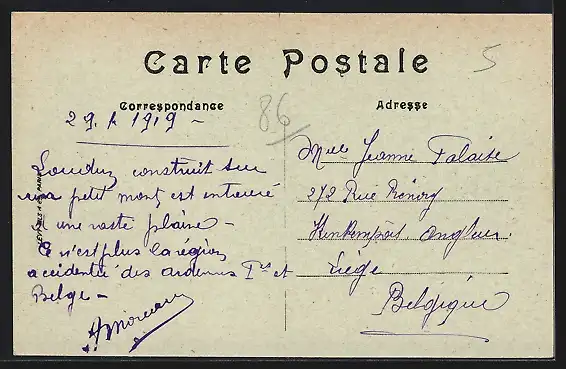 Carte Postale
Correspondance
Adresse
86
5
29. 1. 1919 -
Loudun construit sur
un petit mont est entouré
d'une vaste plaine -
Ce n'est plus la région
accidentée des ardennes et
Belge -
Melle Jeanne Falaise
272 Rue Rénory
Kinkempois Angleur.
Liège
Belgique